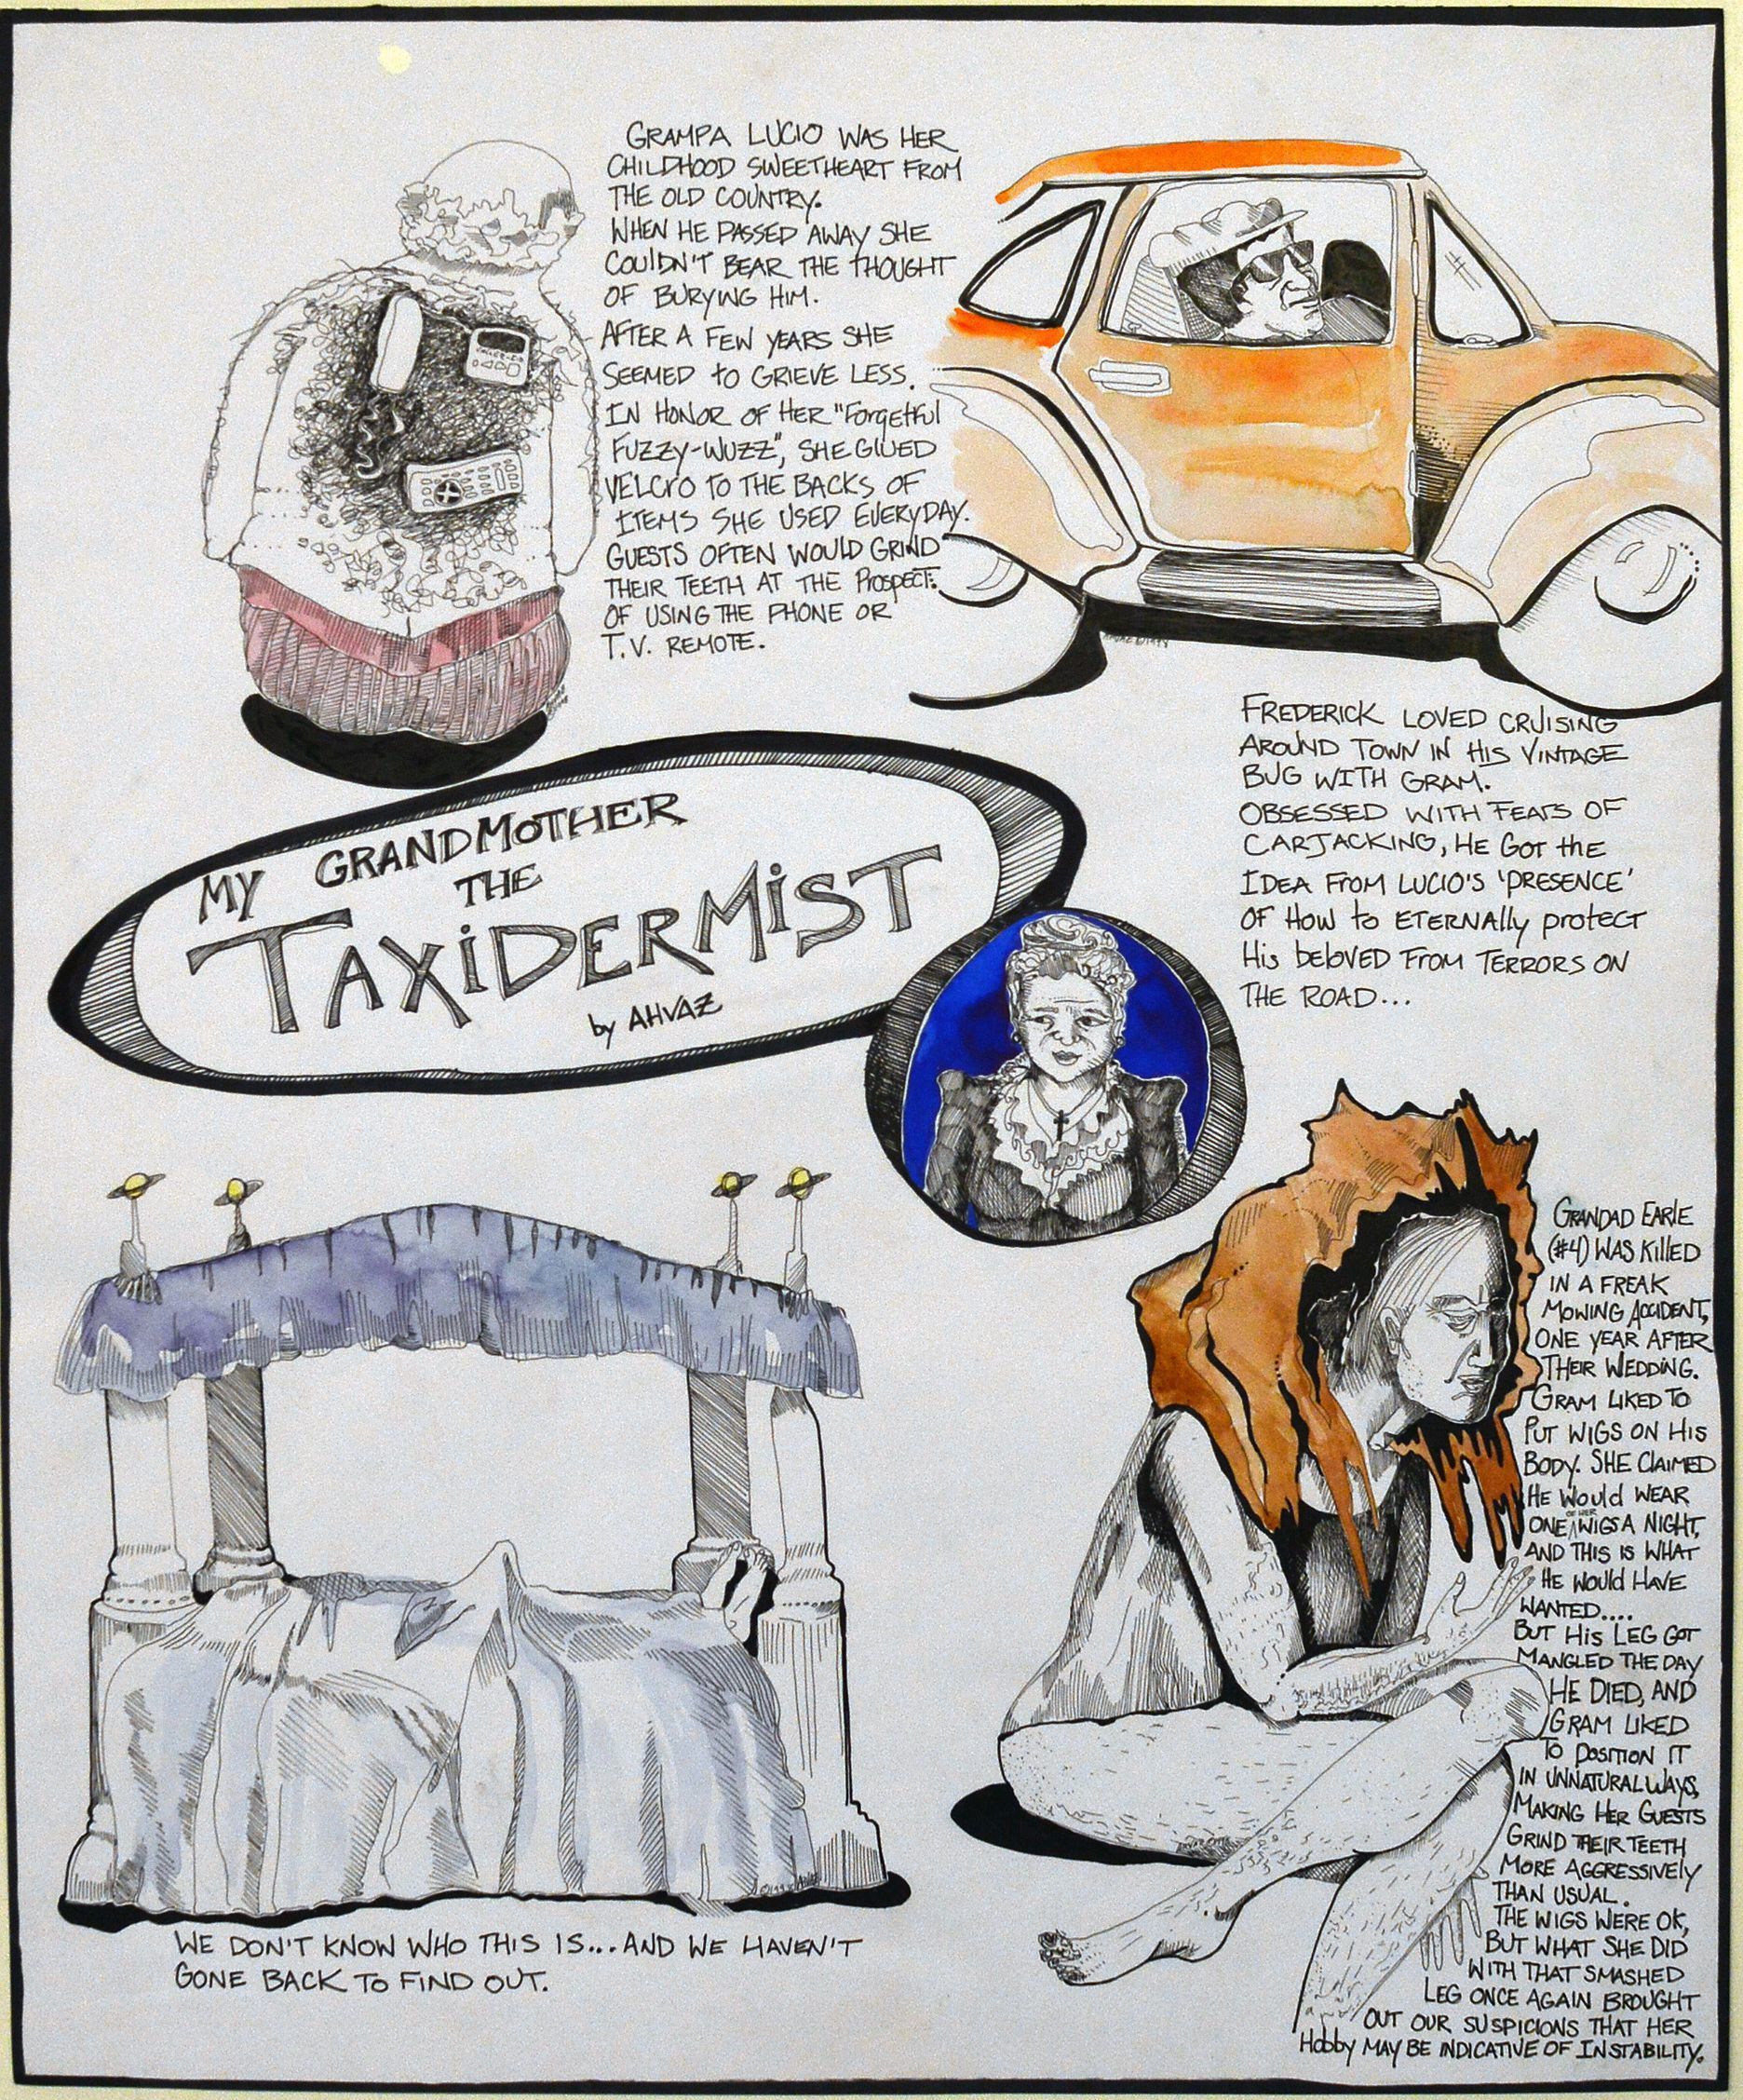 GRAMPA LUCIO WAS HER
CHILDHOOD SWEETHEART FROM
THE OLD COUNTRY.
WHEN HE PASSED AWAY SHE
COULDN'T BEAR THE THOUGHT
OF BURYING HIM.
AFTER A FEW YEARS SHE
SEEMED TO GRIEVE LESS.
IN HONOR OF HER "FORGETFUL
FUZZY-WUZZ", SHE GLUED
VELCRO TO THE BACKS OF
ITEMS SHE USED EVERYDAY.
GUESTS OFTEN WOULD GRIND
THEIR TEETH AT THE PROSPECT
OF USING THE PHONE OR
T.V. REMOTE.
FREDERICK LOVED CRUISING
AROUND TOWN IN HIS VINTAGE
BUG WITH GRAM.
OBSESSED WITH FEARS OF
CARJACKING, HE GOT THE
IDEA FROM LUCIO'S 'PRESENCE'
OF HOW TO ETERNALLY PROTECT
HIS BELOVED FROM TERRORS ON
THE ROAD...
MY GRANDMOTHER
THE
TAXIDERMIST
by AHVAZ
WE DON'T KNOW WHO THIS IS...AND WE HAVEN'T
GONE BACK TO FIND OUT.
GRANDAD EARLE
(#4) WAS KILLED
IN A FREAK
MOWING ACCIDENT,
ONE YEAR AFTER
THEIR WEDDING.
GRAM LIKED TO
PUT WIGS ON HIS
BODY. SHE CLAIMED
HE WOULD WEAR
ONE OF HER WIGS A NIGHT,
AND THIS IS WHAT
HE WOULD HAVE
WANTED....
BUT HIS LEG GOT
MANGLED THE DAY
HE DIED, AND
GRAM LIKED
TO POSITION IT
IN UNNATURAL WAYS,
MAKING HER GUESTS
GRIND THEIR TEETH
MORE AGGRESSIVELY
THAN USUAL.
THE WIGS WERE OK,
BUT WHAT SHE DID
WITH THAT SMASHED
LEG ONCE AGAIN BROUGHT
OUT OUR SUSPICIONS THAT HER
HOBBY MAY BE INDICATIVE OF INSTABILITY.